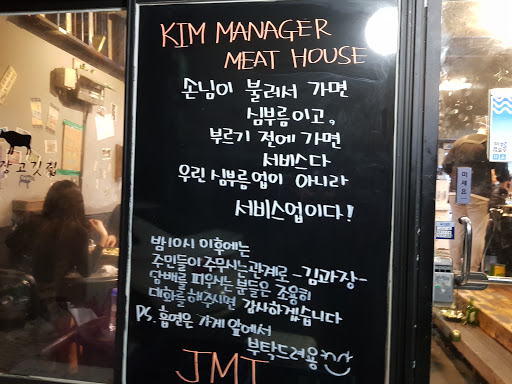 KIM MANAGER
MEAT HOUSE
손님이 불러서 가면
심부름이고,
부르기 전에 가면
서비스다
우린 심부름업이 아니라
서비스업이다!
밤10시 이후에는
주민들이 주무시는관계로 -김과장-
담배를 피우시는 분들은 조용히
대화를 해주시면 감사하겠습니다
P.S. 흡연은 가게 앞에서
부탁드려용^^
JMT
장고깃집